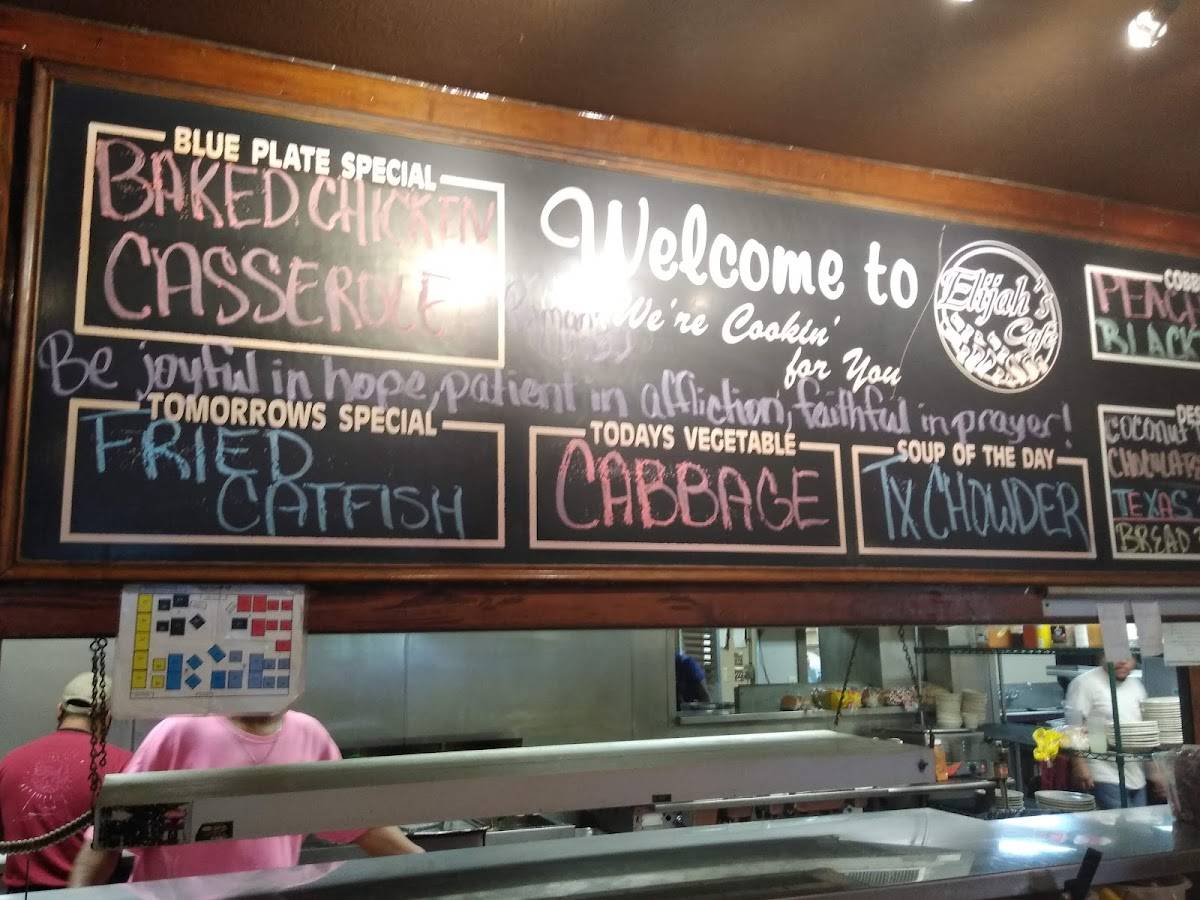 BLUE PLATE SPECIAL
BAKED CHICKEN
CASSEROLE
Welcome to
Elijah's
Cafe
We're Cookin'
for You
COBB
PEACH
BLACK
Be joyful in hope, patient in affliction, faithful in prayer!
TOMORROWS SPECIAL
FRIED
CATFISH
TODAYS VEGETABLE
CABBAGE
SOUP OF THE DAY
TX CHOWDER
DE
COCONUT
CHOCOLATE
TEXAS
BREAD